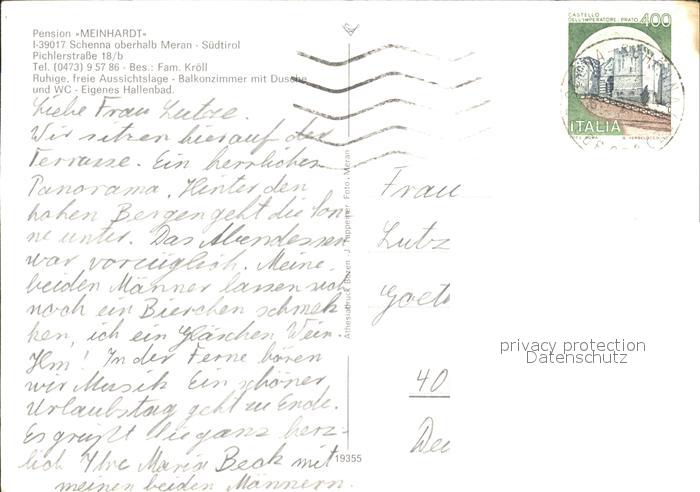 Pension »MEINHARDT«
I-39017 Schenna oberhalb Meran - Südtirol
Pichlerstraße 18/b
Tel. (0473) 9 57 86 - Bes.: Fam. Kröll
Ruhige, freie Aussichtslage - Balkonzimmer mit Dusche
und WC - Eigenes Hallenbad.
Liebe Frau Lutze.
Wir sitzen hier auf der
Terrasse. Ein herrliches
Panorama. Hinter den
hohen Bergen geht die Son
ne unter. Das Abendessen
war vorzüglich. Meine
beiden Männer lassen sich
noch ein Bierchen schmek
ken, ich ein Gläschen Wein.
Hm! In der Ferne hören
wir Musik Ein schöner
Urlaubstag geht zu Ende.
Es grüßt Sie ganz herz-
lich Ihre Maria Beck mit
meinen beiden Männern.
Athesiadruck Bozen · J. Tappeiner Foto, Meran
19355
CASTELLO
DELL'IMPERATORE · PRATO
400
ITALIA
Frau
Lutz
Goet
40
privacy protection
Datenschutz